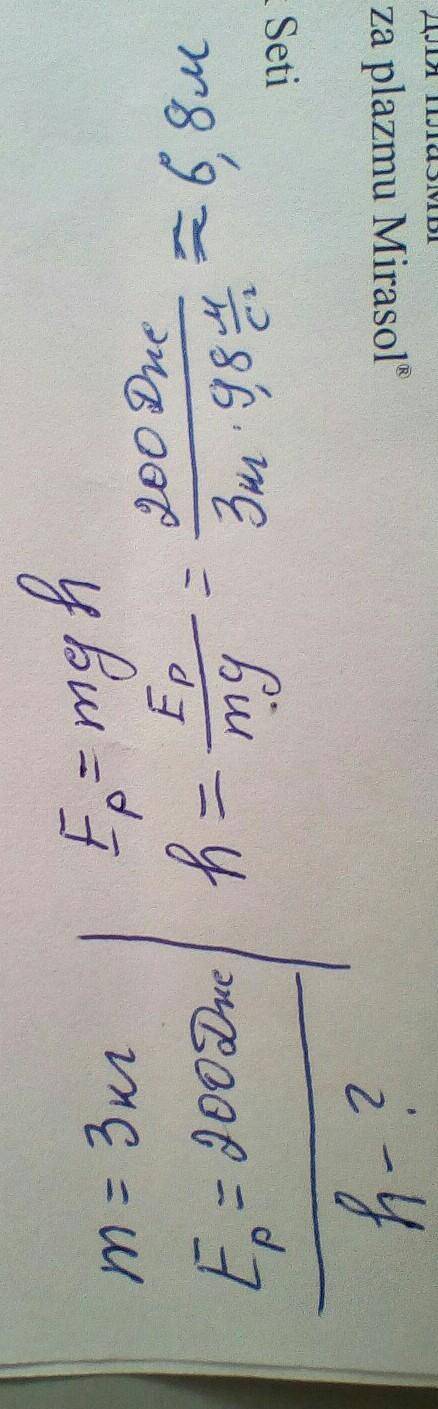 для плазмы
za plazmu Mirasol®
Seti
m = 3кг
Eₚ = 200Дж
h - ?
Eₚ = mgh
h = Eₚ/mg = 200Дж/3кг · 9,8 м/с² ≈ 6,8м